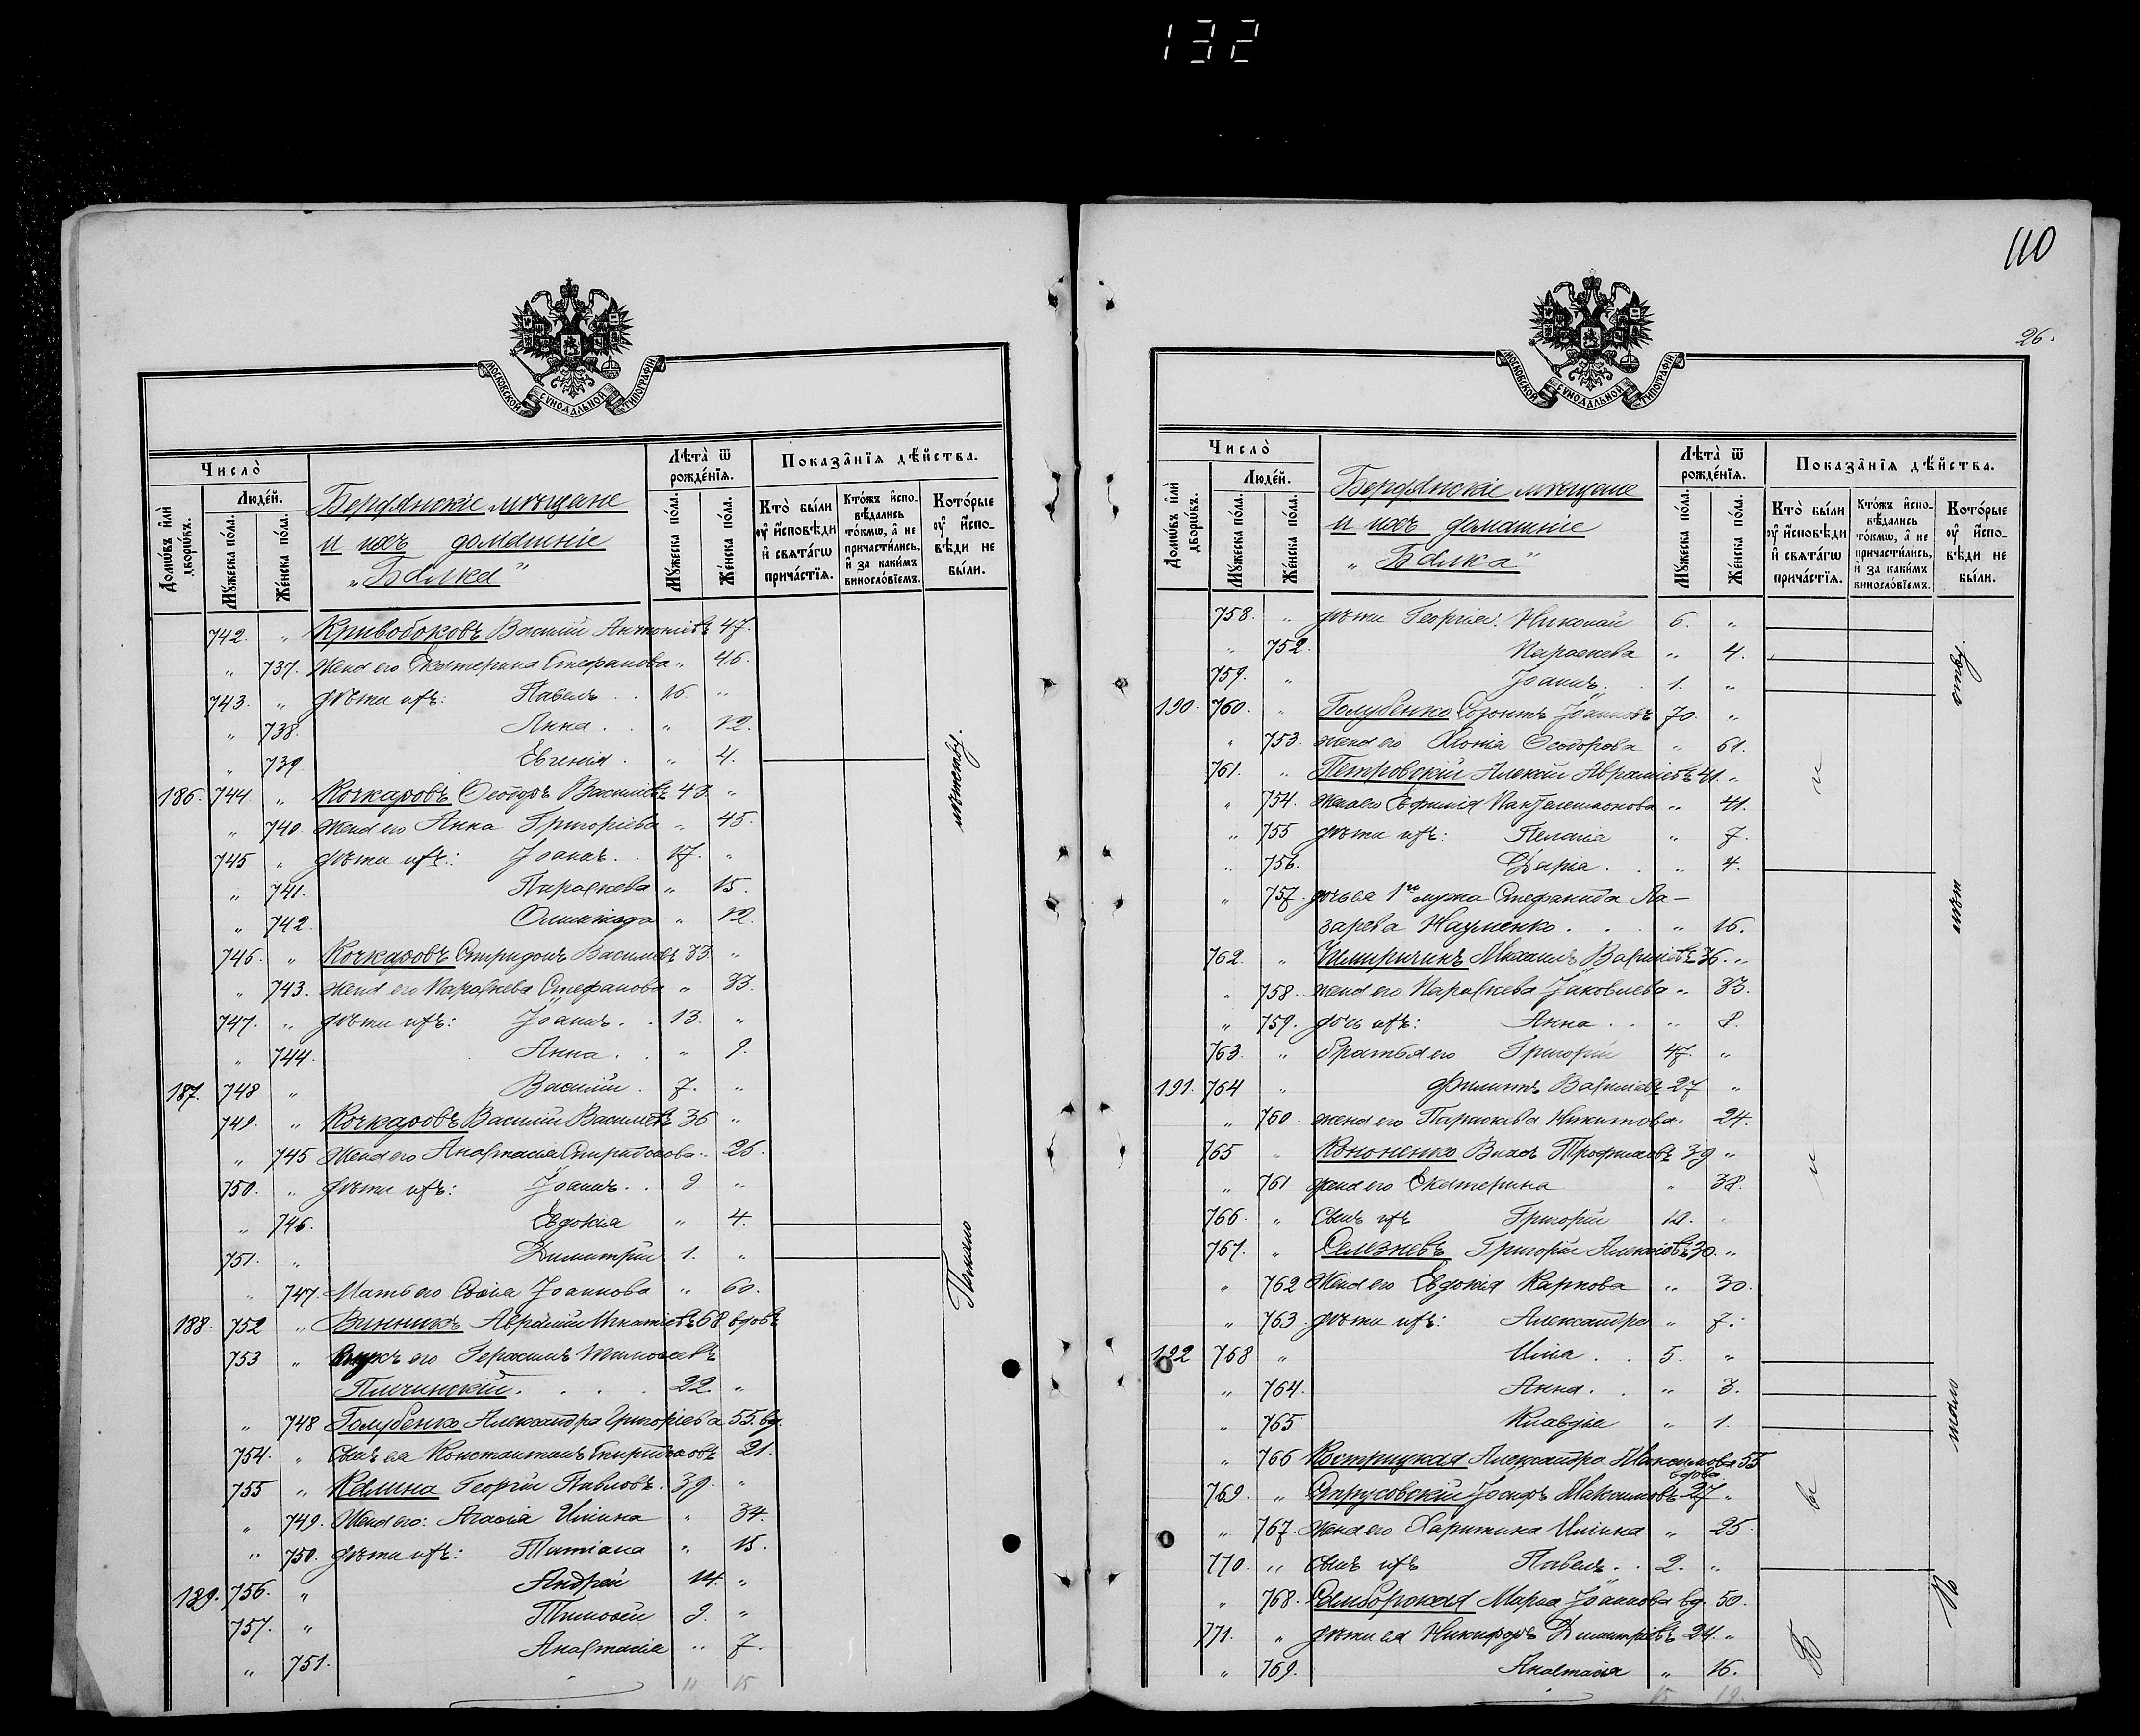 132
110
26.
МОСКОВСКОЙ СѴНОДАЛЬНОЙ ТИПОГРАФІИ
Число̀
Люде́й.
Домѡ́въ и҆лѝ дворѡ́въ.
Мꙋ́жеска по́ла.
Же́нска по́ла.
Бердянскіе мѣщане
и ихъ домашніе
„Балка"
Лѣта̀ ѿ рожде́нїѧ.
Мꙋ́жеска по́ла.
Же́нска по́ла.
Показа̑нїѧ дѣ́йства.
Кто̀ бы́ли ᲂу҆ и҆сповѣди и҆ свѧта́гѡ прича́стїѧ.
Кто́жъ и҆спо-вѣдались то́кмѡ, а҆ не причасти́лись, и҆ за каки́мъ винослѡ́вїемъ.
Кото́рые ᲂу҆ и҆спо-вѣди не бы́ли.
742. „ Кривобоковъ Василій Антоніевъ 47.
„ 737. Жена его Екатерина Стефанова „ 46.
743. „ дѣти ихъ: Павелъ . . 16. „
„ 738. Анна . . „ 12.
„ 739. Евгенія . „ 4.
186. 744 „ Кочкаровъ Ѳеодоръ Василіевъ 43. „
„ 740. жена его Анна Григоріева „ 45.
745 „ дѣти ихъ: Іоаннъ . . 17. „
„ 741. Параскева „ 15.
„ 742. Олимпіада „ 12.
746. „ Кочкаровъ Спиридонъ Василіевъ 33. „
„ 743. жена его Параскева Стефанова „ 33.
747. „ дѣти ихъ: Іоаннъ . . 13. „
„ 744. Анна . . „ 9.
187. 748 „ Василій . 7. „
749. „ Кочкаровъ Василій Василіевъ 36 „
„ 745 Жена его Анастасія Спиридонова „ 26.
750. „ дѣти ихъ: Іоаннъ . . 9 „
„ 746. Евдокія „ 4.
751. „ Димитрій 1. „
„ 747. Мать его Іоаннова „ 60.
188. 752 „ Винникъ Аврамій Игнатіевъ 68 вдовъ
753 „ Внукъ его Герасимъ Тимоѳеевъ
22. „
„ 748 Голубенко Александра Григоріева 55. вд.
754. „ Сынъ ея Константинъ Спиридоновъ 21.
755 „ Калина Георгій Павловъ . 39. „
„ 749. Жена его: Агаѳія Иліина „ 34.
„ 750. дѣти ихъ: Татіана „ 15.
189. 756. „ Андрей 14. „
757. „ Тимоѳей 9. „
„ 751. Анастасія „ 7.
11 15
Помало
мѣтству.
МОСКОВСКОЙ СѴНОДАЛЬНОЙ ТИПОГРАФІИ
Число̀
Люде́й.
Домѡ́въ и҆лѝ дворѡ́въ.
Мꙋ́жеска по́ла.
Же́нска по́ла.
Бердянскіе мѣщане
и ихъ домашніе
„Балка"
Лѣта̀ ѿ рожде́нїѧ.
Мꙋ́жеска по́ла.
Же́нска по́ла.
Показа̑нїѧ дѣ́йства.
Кто̀ бы́ли ᲂу҆ и҆сповѣди и҆ свѧта́гѡ прича́стїѧ.
Кто́жъ и҆спо-вѣдались то́кмѡ, а҆ не причасти́лись, и҆ за каки́мъ винослѡ́вїемъ.
Кото́рые ᲂу҆ и҆спо-вѣди не бы́ли.
758. „ дѣти Георгія: Николай 6. „
„ 752. Параскева „ 4.
759. „ Іоаннъ . . 1. „
190. 760. „ Голубенко Созонтъ Іоанновъ 70. „
„ 753. жена его Ѳеодорова „ 61.
761. „ Петровскій Алексій Авраміевъ 41. „
„ 754. жена его Евфимія Пантелеимонова „ 41.
„ 755 дѣти ихъ: Пелагія „ 7.
„ 756. Дарія . . „ 4.
„ 757. дочь ея 1го мужа Стефанида Ла-
зарева Науменко . . . „ 16.
762. „ Михаилъ Василіевъ 36. „
„ 758. жена его Параскева Іаковлева „ 33.
„ 759. дочь ихъ: Анна . . „ 8.
763. „ братья его Григорій 47. „
191. 764 „ Филиппъ Василіевъ 27 „
„ 760. жена его Параскева Никитова. 24.
765 „ Кононенко Трофимовъ 39 „
„ 761 жена его Екатерина „ 38.
766. „ Сынъ ихъ Григорій 12. „
767. „ Селезневъ Григорій Алексіевъ 30. „
„ 762 Жена его Евдокія Карпова „ 30.
„ 763. дѣти ихъ: Александра „ 7.
192 768 „ Илія . . 5. „
„ 764. Анна . . „ 3.
„ 765 Клавдія „ 1.
„ 766 Кострицкая Александра Максимова 55
вдова
769. „ Струсовскій Іосифъ Максимовъ 27 „
„ 767. Жена его Харитина Иліина „ 25.
770. „ сынъ ихъ Павелъ . . 2. „
„ 768. Самборская Марія Іоаннова вд. 50.
771. „ дѣти ея Никифоръ Димитріевъ 24. „
„ 769. Анастасія „ 16.
15 19.
Б ы л и
П о мало лѣт ству.